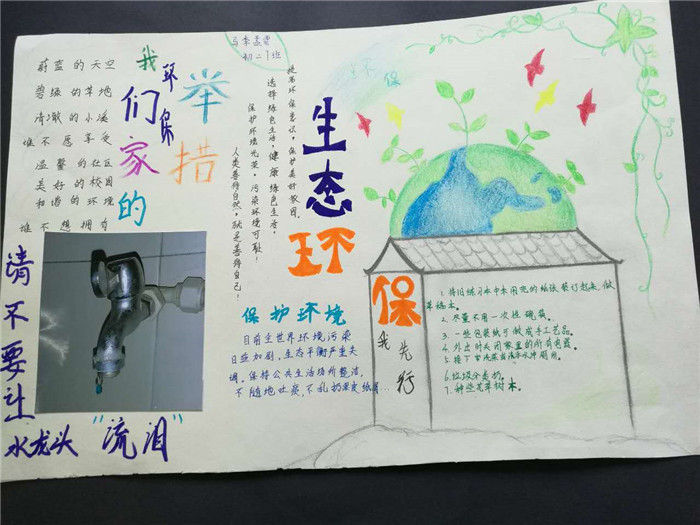 蔚蓝的天空
碧绿的草地
清澈的小溪
谁不愿享受
温馨的社区
美好的校园
和谐的环境
谁不想拥有
我们家的
环保
举措
初二1班
提高环保意识,保护美好家园。
选择绿色生活,健康绿色生活,
保护环境光荣,污染环境可耻!
人类善待自然,就是善待自己!
生态环保
我先行
生态
保
请不要让
水龙头“流泪”
保护环境
目前全世界环境污染
日益加剧,生态平衡严重失
调。保持公共生活场所整洁,
不随地吐痰,不乱扔果皮纸屑...
1. 将旧练习本中未用完的纸张装订起来,做
草稿本。
2. 尽量不用一次性碗筷。
3. 一些包装纸可做成手工艺品。
4. 外出时关闭家里的所有电器。
6. 垃圾分类扔。
7. 种些花草树木。